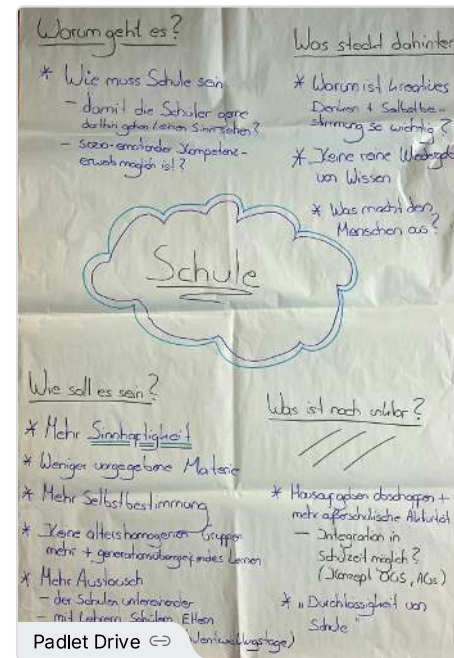 Worum geht es?
* Wie muss Schule sein
- damit die Schüler gerne
dorthin gehen / einen Sinn sehen?
- sozio-emotionaler Kompetenz-
erwerb möglich ist!?
Was steckt dahinter
* Warum ist kreatives
Denken + Selbstbe-
stimmung so wichtig?
* Keine reine
von Wissen
* Was macht den
Menschen aus?
Schule
Wie soll es sein?
* Mehr Sinnhaftigkeit
* Weniger vorgegebene Materie
* Mehr Selbstbestimmung
* Keine altershomogenen Gruppen
mehr + generationsübergreifendes Lernen
* Mehr Austausch
- der Schulen untereinander
- mit Lehrern, Schülern, Eltern
Was ist noch unklar?
* Hausaufgaben abschaffen +
mehr außerschulische Aktivität
- Integration in
Schulzeit möglich?
(Konzept OGS, AGs)
* „Durchlässigkeit von
Schule"
Padlet Drive